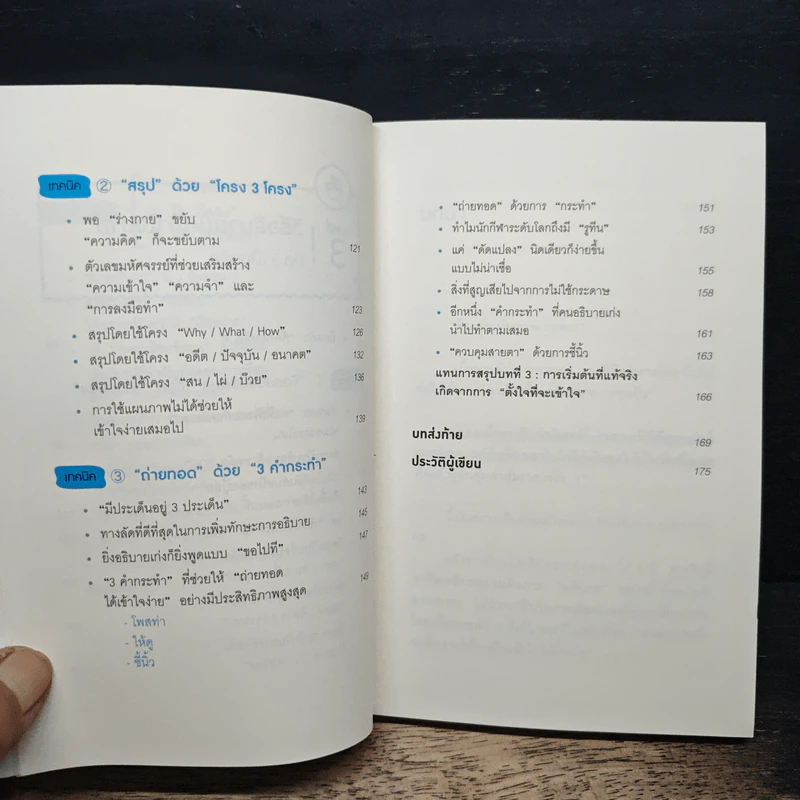 เทคนิค ② "สรุป" ด้วย "โครง 3 โครง"
• พอ "ร่างกาย" ขยับ
"ความคิด" ก็จะขยับตาม 121
• ตัวเลขมหัศจรรย์ที่ช่วยเสริมสร้าง
"ความเข้าใจ" "ความจำ" และ
"การลงมือทำ" 123
• สรุปโดยใช้โครง "Why / What / How" 126
• สรุปโดยใช้โครง "อดีต / ปัจจุบัน / อนาคต" 132
• สรุปโดยใช้โครง "สน / ไผ่ / บ๊วย" 136
• การใช้แผนภาพไม่ได้ช่วยให้
เข้าใจง่ายเสมอไป 139
เทคนิค ③ "ถ่ายทอด" ด้วย "3 คำกระทำ"
• "มีประเด็นอยู่ 3 ประเด็น" 143
• ทางลัดที่ดีที่สุดในการเพิ่มทักษะการอธิบาย 145
• ยิ่งอธิบายเก่งก็ยิ่งพูดแบบ "ขอไปที" 147
• "3 คำกระทำ" ที่ช่วยให้ "ถ่ายทอด 149
ได้เข้าใจง่าย" อย่างมีประสิทธิภาพสูงสุด
- โพสท่า
- ให้ดู
- ชี้นิ้ว
• "ถ่ายทอด" ด้วยการ "กระทำ" 151
• ทำไมนักกีฬาระดับโลกถึงมี "รูทีน" 153
• แค่ "ดัดแปลง" นิดเดียวก็ง่ายขึ้น
แบบไม่น่าเชื่อ 155
• สิ่งที่สูญเสียไปจากการไม่ใช้กระดาษ 158
• อีกหนึ่ง "คำกระทำ" ที่คนอธิบายเก่ง
นำไปทำตามเสมอ 161
• "ควบคุมสายตา" ด้วยการชี้นิ้ว 163
แทนการสรุปบทที่ 3 : การเริ่มต้นที่แท้จริง
เกิดจากการ "ตั้งใจที่จะเข้าใจ" 166
บทส่งท้าย 169
ประวัติผู้เขียน 175